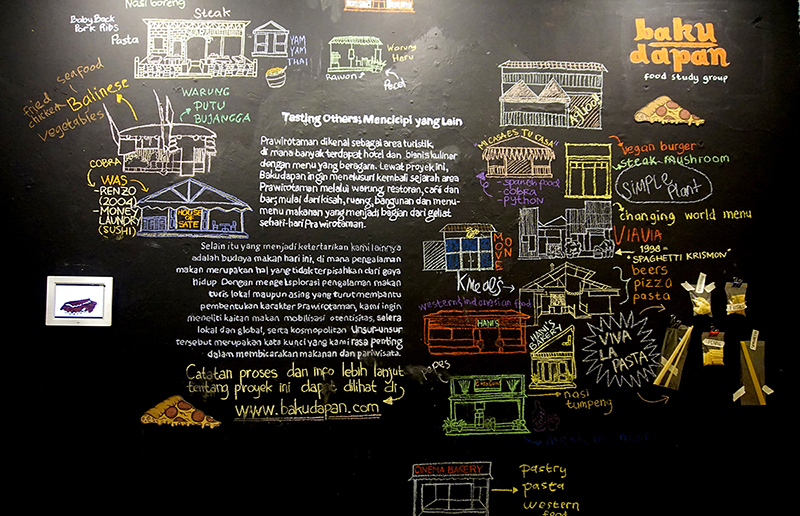 Nasi Goreng
Steak
Baby Back
Pork Ribs
Pasta
YAM
YAM
THAI
Warung
Heru
Rawon
Pecel
baku
dapan
food study group
seafood
fried
chicken
Balinese
vegetables
WARUNG
PUTU
BUJANGGA
COBRA
WAS
-RENZO
(2004)
-MONEY
LAUNDRY
(SUSHI)
HOUSE
OF
SATE
Testing Others; Mencicipi yang Lain
Prawirotaman dikenal sebagai area turistik,
di mana banyak terdapat hotel dan bisnis kuliner
dengan menu yang beragam. Lewat proyek ini,
Bakudapan ingin menelusuri kembali sejarah area
Prawirotaman melalui warung, restoran, café dan
bar; mulai dari kisah, ruang, bangunan dan menu-
menu makanan yang menjadi bagian dari geliat
sehari-hari Prawirotaman.
Selain itu yang menjadi ketertarikan kami lainnya
adalah budaya makan hari ini, di mana pengalaman
makan merupakan hal yang tidak terpisahkan dari gaya
hidup. Dengan mengeksplorasi pengalaman makan
turis lokal maupun asing yang turut membantu
pembentukan karakter Prawirotaman, kami ingin
meneliti kaitan makan mobilisasi otentisitas, selera
lokal dan global, serta kosmopolitan. Unsur-unsur
tersebut merupakan kata kunci yang kami rasa penting
dalam membicarakan makanan dan pariwisata.
Catatan proses dan info lebih lanjut
tentang proyek ini dapat dilihat di
www.bakudapan.com
"MI CASA ES TU CASA"
-spanish food
-cobra
-python
vegan burger
steak mushroom
SIMPLE
PLANT
changing world menu
VIAVIA
1998 =
"SPAGHETTI KRISMON"
MOVE
K Meals
beers
pizza
pasta
western & indonesian food
HANI'S
HANI'S
VIVA
LA
PASTA
nasi
tumpeng
CINEMA BAKERY
pastry
pasta
western
food